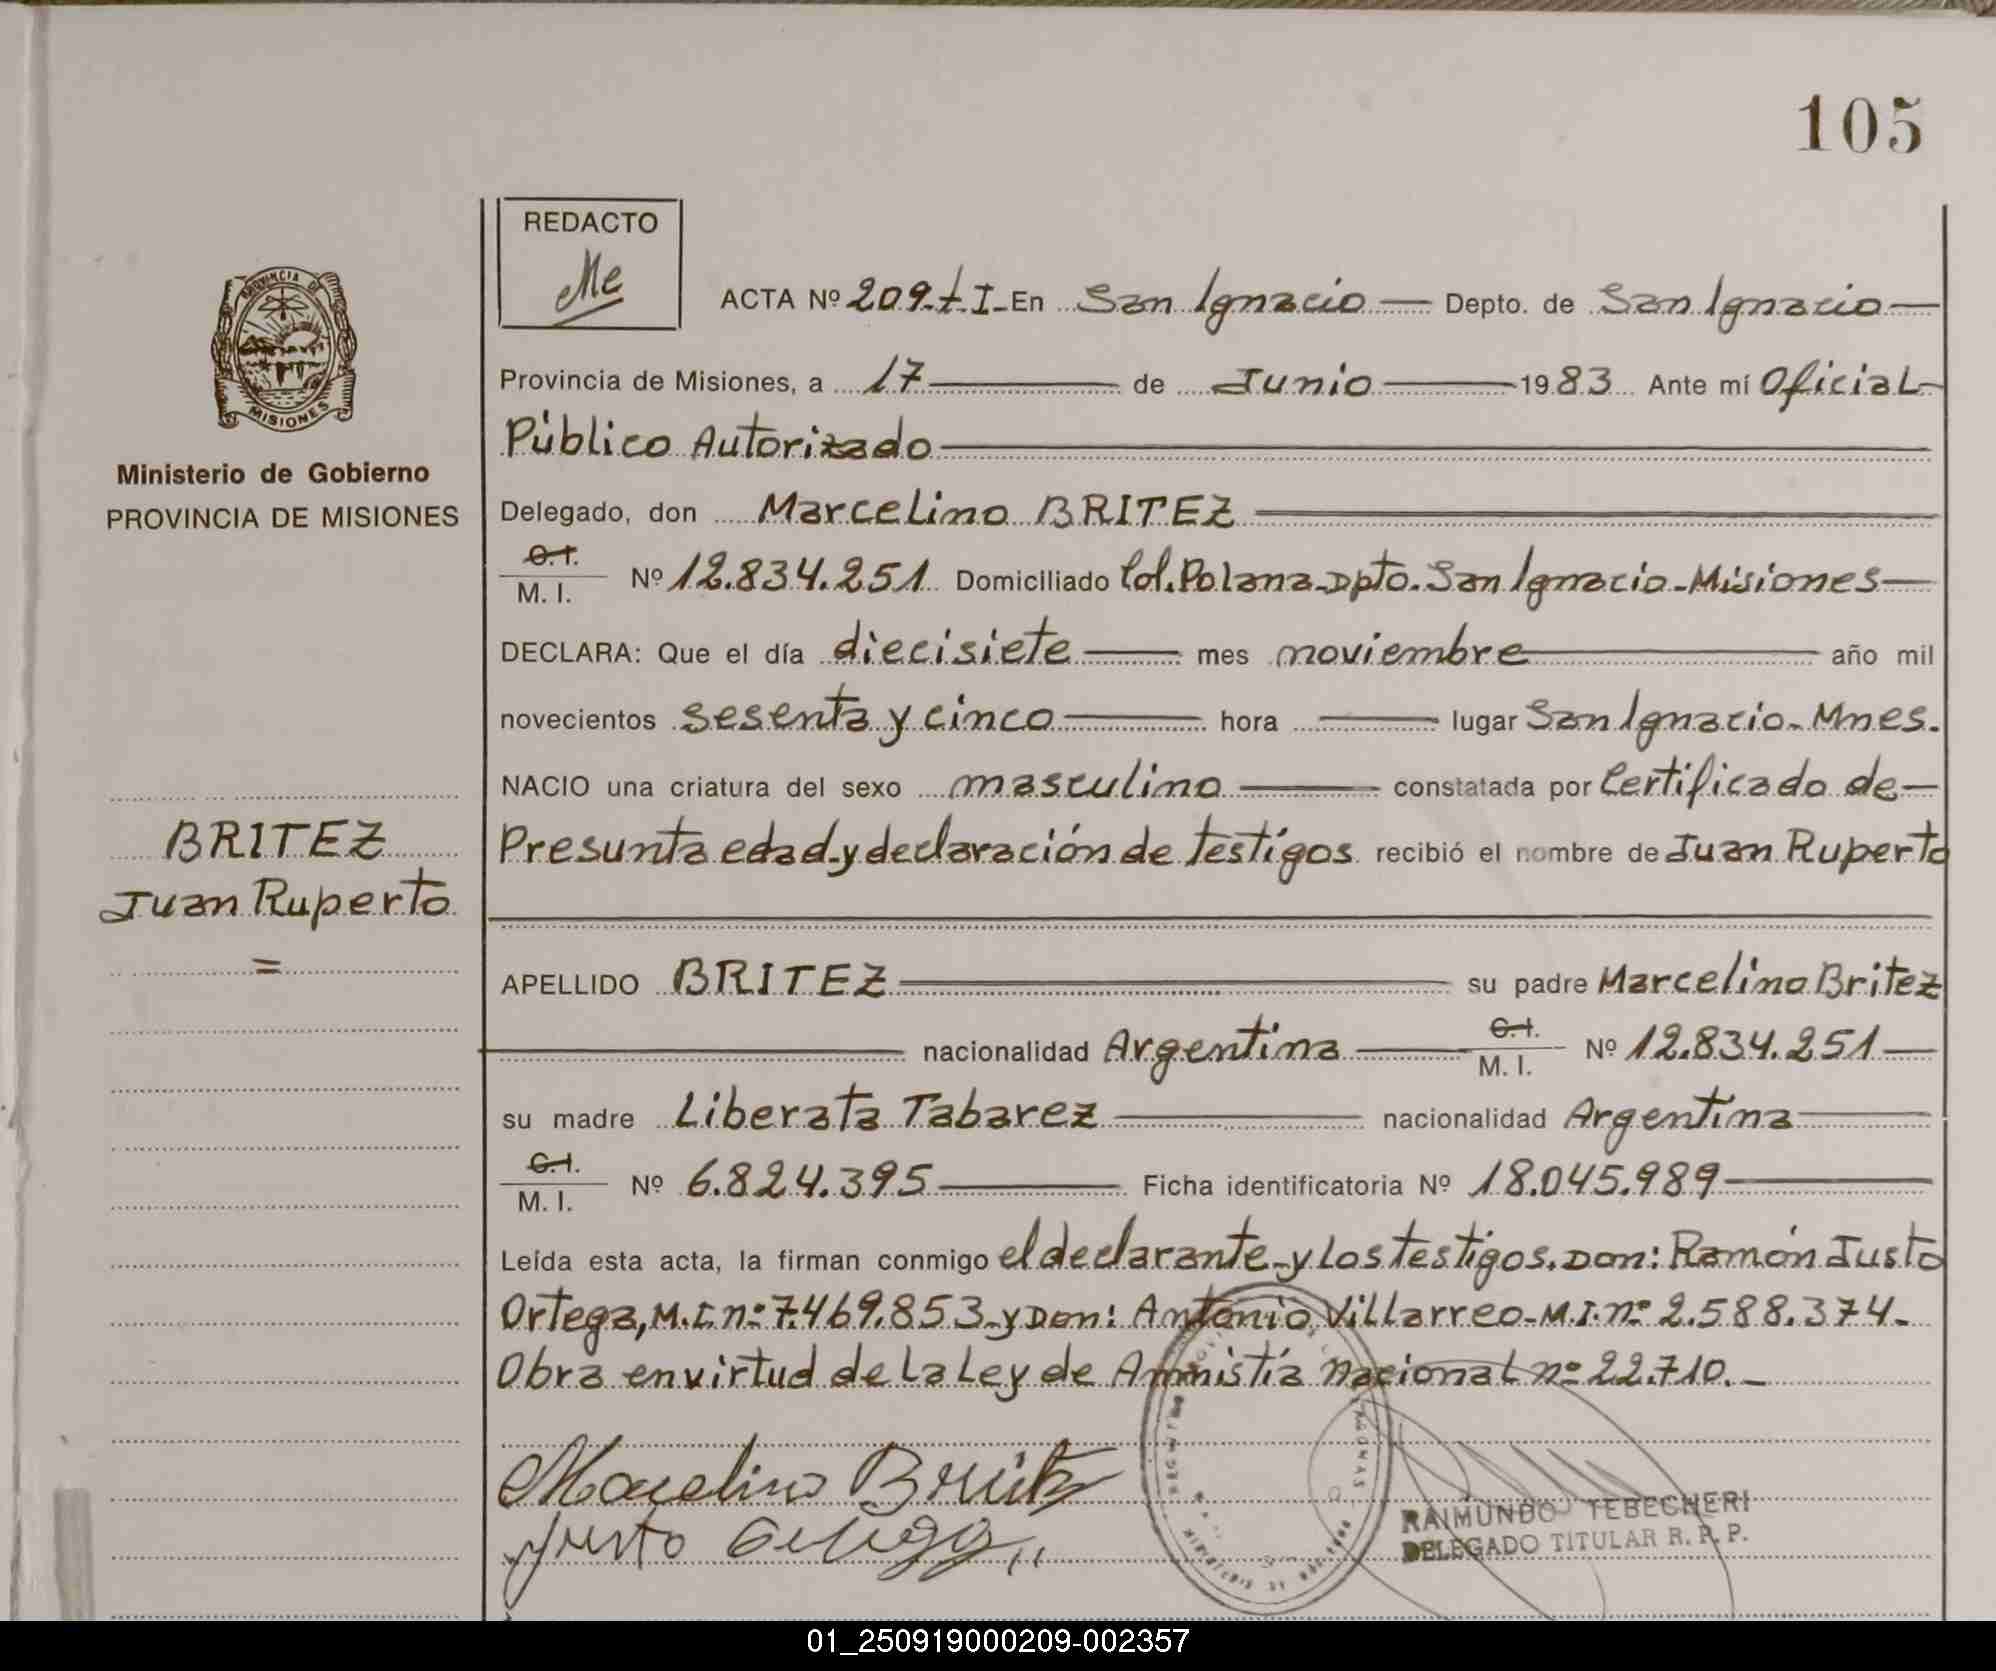 105
REDACTO
Me
ACTA Nº 209-t-I- En San Ignacio Depto. de San Ignacio
Provincia de Misiones, a 17 de Junio 1983 Ante mí Oficial
Público Autorizado
Delegado, don Marcelino BRITEZ
C.I.
M. I. Nº 12.834.251 Domiciliado Col. Polana-Dpto. San Ignacio-Misiones
DECLARA: Que el día diecisiete mes noviembre año mil
novecientos sesenta y cinco hora lugar San Ignacio-Mnes.
NACIO una criatura del sexo masculino constatada por Certificado de
Presunta edad y declaración de testigos recibió el nombre de Juan Ruperto
APELLIDO BRITEZ su padre Marcelino Britez
nacionalidad Argentina C.I. M. I. Nº 12.834.251
su madre Liberata Tabarez nacionalidad Argentina
C.I.
M. I. Nº 6.824.395 Ficha identificatoria Nº 18.045.989
Leída esta acta, la firman conmigo el declarante y los testigos. Don: Ramón Justo
Ortega, M.I. nº 7.469.853 y Don: Antonio Villarreo-M.I. nº 2.588.374-
Obra en virtud de la Ley de Amnistía Nacional nº 22.710.-
Marcelino Britez
Justo Ortega
RAIMUNDO TEBECHERI
DELEGADO TITULAR R. P. P.
PROVINCIA DE
MISIONES
Ministerio de Gobierno
PROVINCIA DE MISIONES
BRITEZ
Juan Ruperto
=
01_250919000209-002357